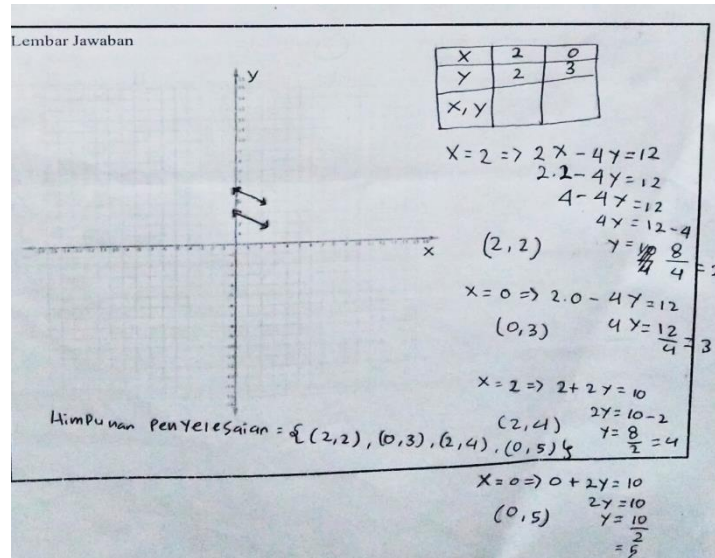 Lembar Jawaban
Y
X
X 2 0
Y 2 3
X, Y
X = 2 => 2X - 4Y = 12
2.2 - 4Y = 12
4 - 4Y = 12
4Y = 12 - 4
(2,2) Y = 8/4 = 2
X = 0 => 2.0 - 4Y = 12
(0,3) 4Y = 12/4 = 3
X = 2 => 2 + 2Y = 10
2Y = 10 - 2
(2,4) Y = 8/2 = 4
Himpunan Penyelesaian = {(2,2), (0,3), (2,4), (0,5)}
X = 0 => 0 + 2Y = 10
2Y = 10
(0,5) Y = 10/2
= 5